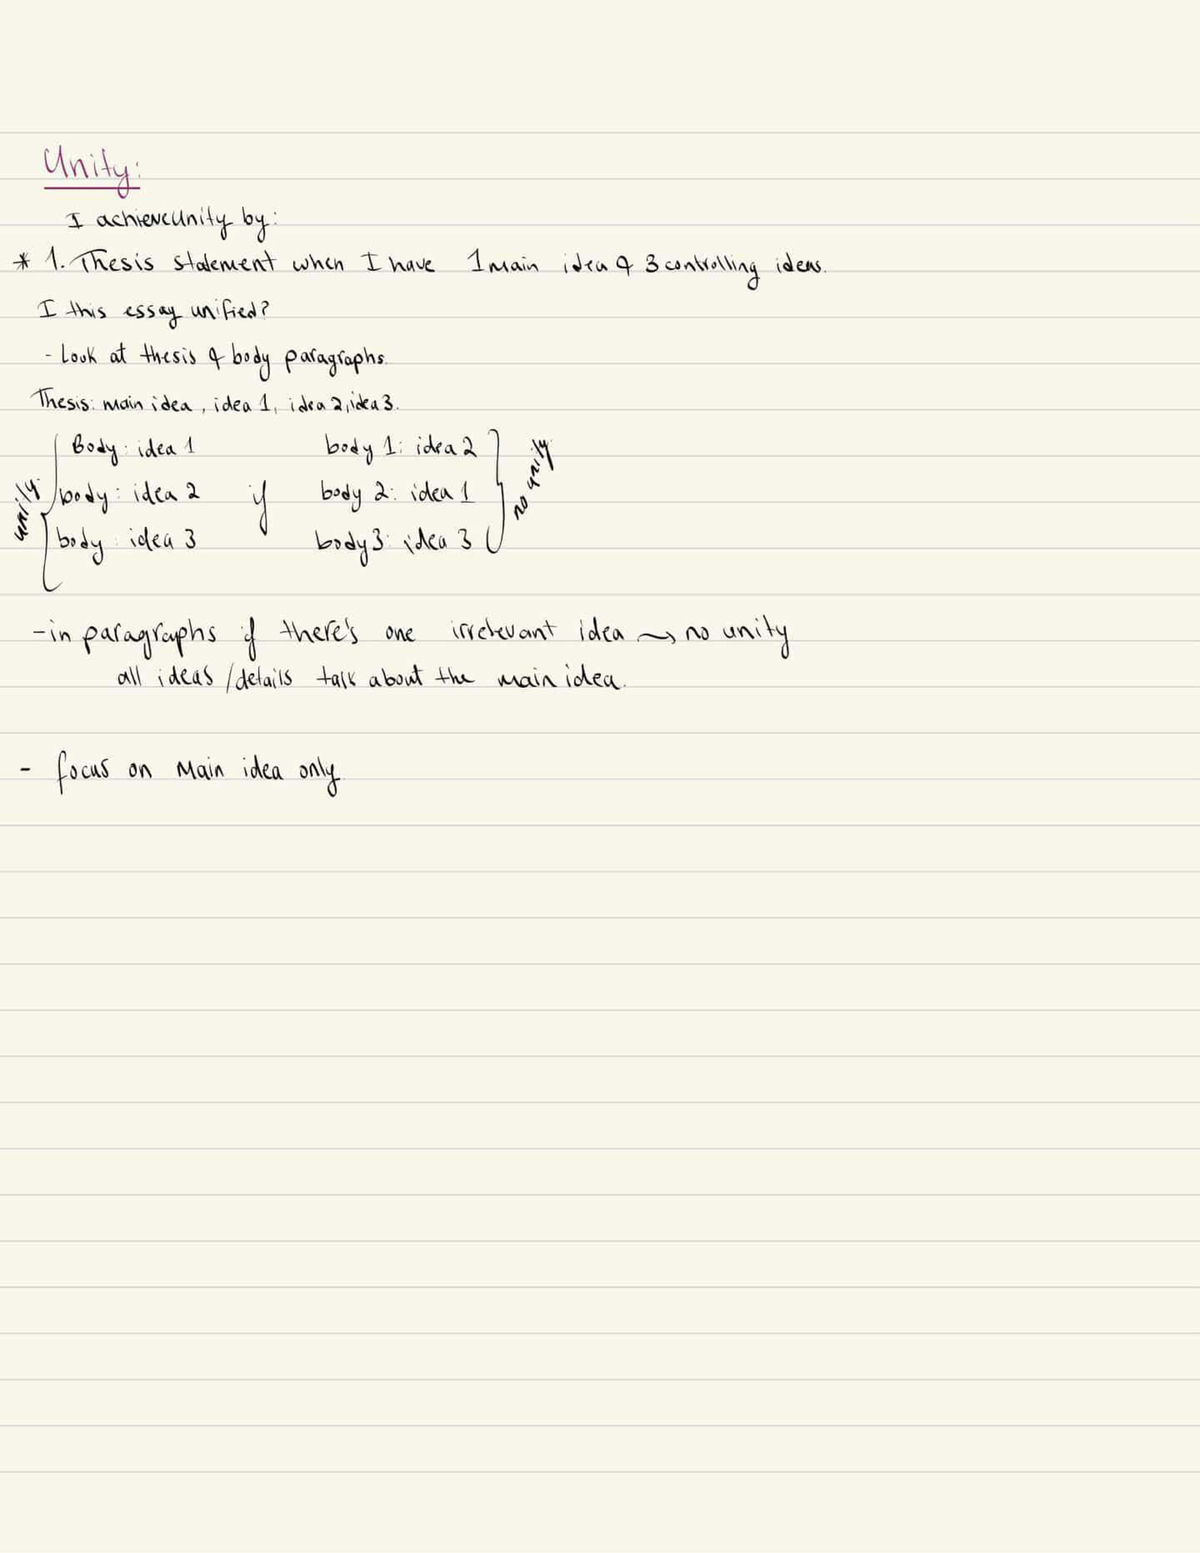 Unity:
I achieve unity by:
* 1. Thesis statement when I have 1 main idea & 3 controlling ideas.
I this essay unified?
- Look at thesis & body paragraphs.
Thesis: main idea, idea 1, idea 2, idea 3.
unity
Body: idea 1
body: idea 2
body: idea 3
if
body 1: idea 2
body 2: idea 1
body 3: idea 3
no unity
- in paragraphs if there's one irrelevant idea → no unity
all ideas / details talk about the main idea.
- focus on Main idea only